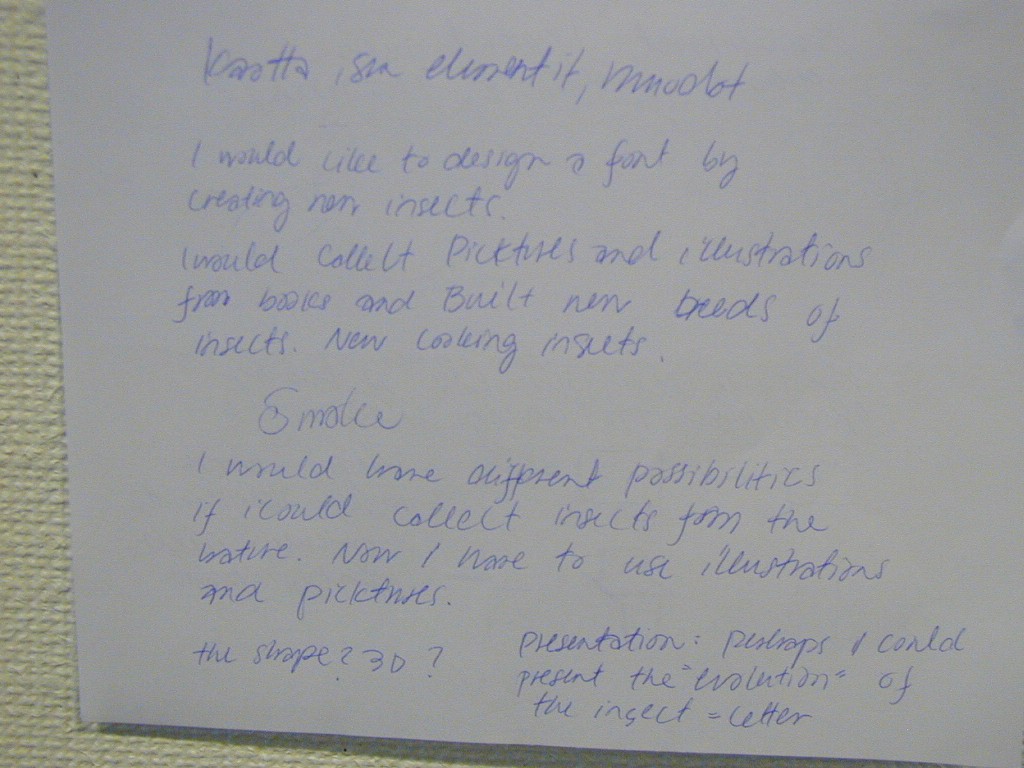 elementit, muodot
I would like to design a font by
creating new insects.
I would collect Picktures and illustrations
from books and Built new breeds of
insects. New looking insects.
Smoke
I would have different possibilities
if i could collect insects form the
natüre. Now I have to use illustrations
and picktures.
the shape? 3D?
presentation: perhaps I could
present the "evolution" of
the insect = letter